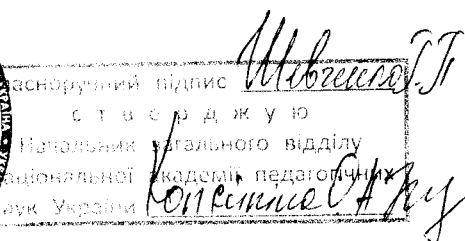 асноручний підпис Шевченко Г.П
стверджую
Начальник загального відділу
аціональної академії педагогічних
аук України